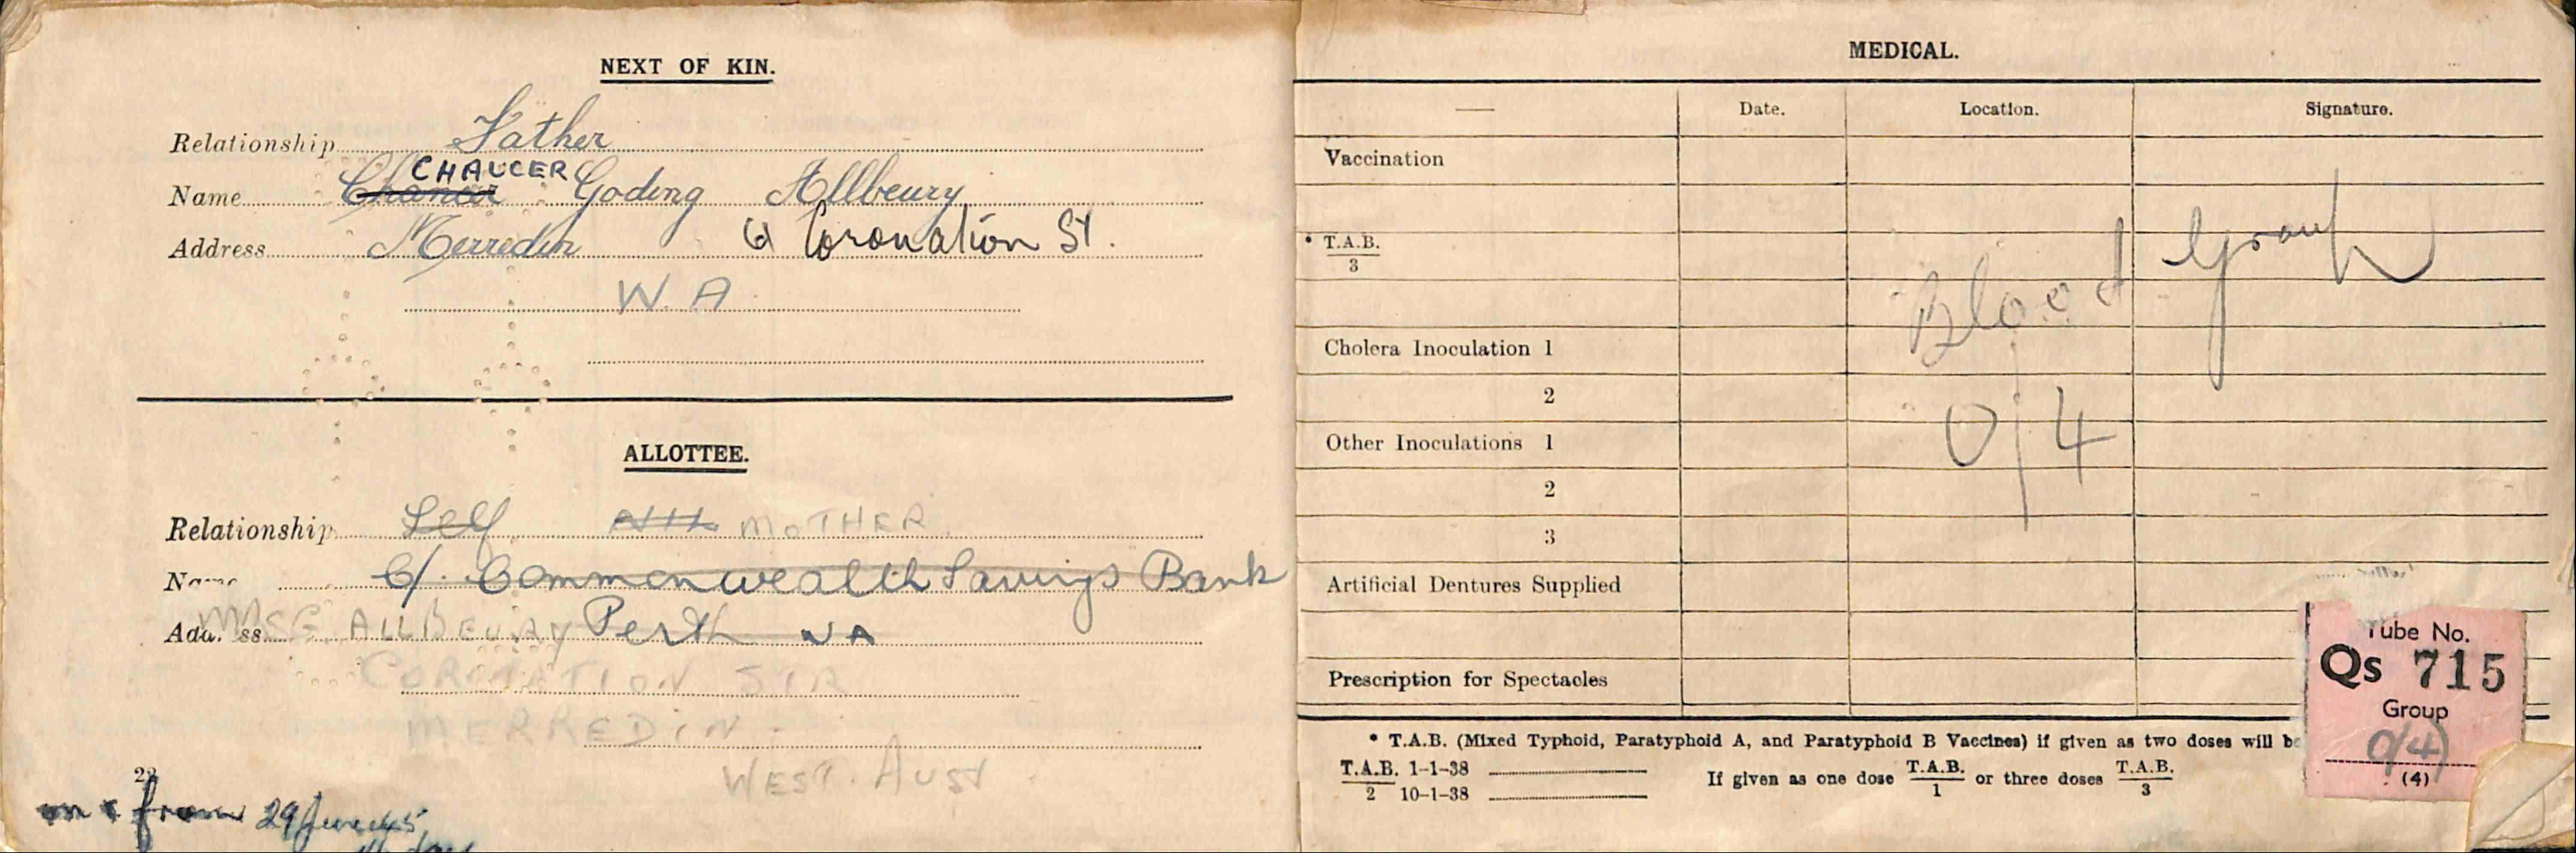 NEXT OF KIN.
Relationship Father
CHAUCER
Name Chancer Goding Allbeury
Address Merredin 61 Coronation St.
W. A.
ALLOTTEE.
Relationship Self Nil MOTHER
Name C/. Commonwealth Savings Bank
Address MRS G ALLBEURY Perth WA
CORONATION STR
MERREDIN -
WEST. AUST
from 29 June 45
MEDICAL.
— Date. Location. Signature.
Vaccination
* T.A.B.
3
Blood Group
Cholera Inoculation 1
2
O/4
Other Inoculations 1
2
3
Artificial Dentures Supplied
Prescription for Spectacles
Tube No.
Qs 715
Group
O(4)
(4)
* T.A.B. (Mixed Typhoid, Paratyphoid A, and Paratyphoid B Vaccines) if given as two doses will be
T.A.B. 1-1-38 If given as one dose T.A.B. or three doses T.A.B.
2 10-1-38 1 3